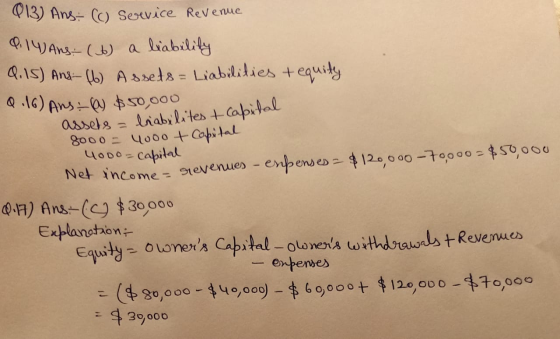 Q13) Ans:- (c) Service Revenue
Q.14) Ans:- (b) a liability
Q.15) Ans- (b) Assets = Liabilities + equity
Q.16) Ans:- (a) $50,000
assets = liabilites + capital
8000 = 4000 + capital
4000 = capital
Net income = revenues - expenses = $120,000 - 70,000 = $50,000
Q.17) Ans:- (C) $30,000
Explanation:-
Equity = owner's Capital - owner's withdrawals + Revenues
- expenses
= ($80,000 - $40,000) - $60,000 + $120,000 - $70,000
= $30,000